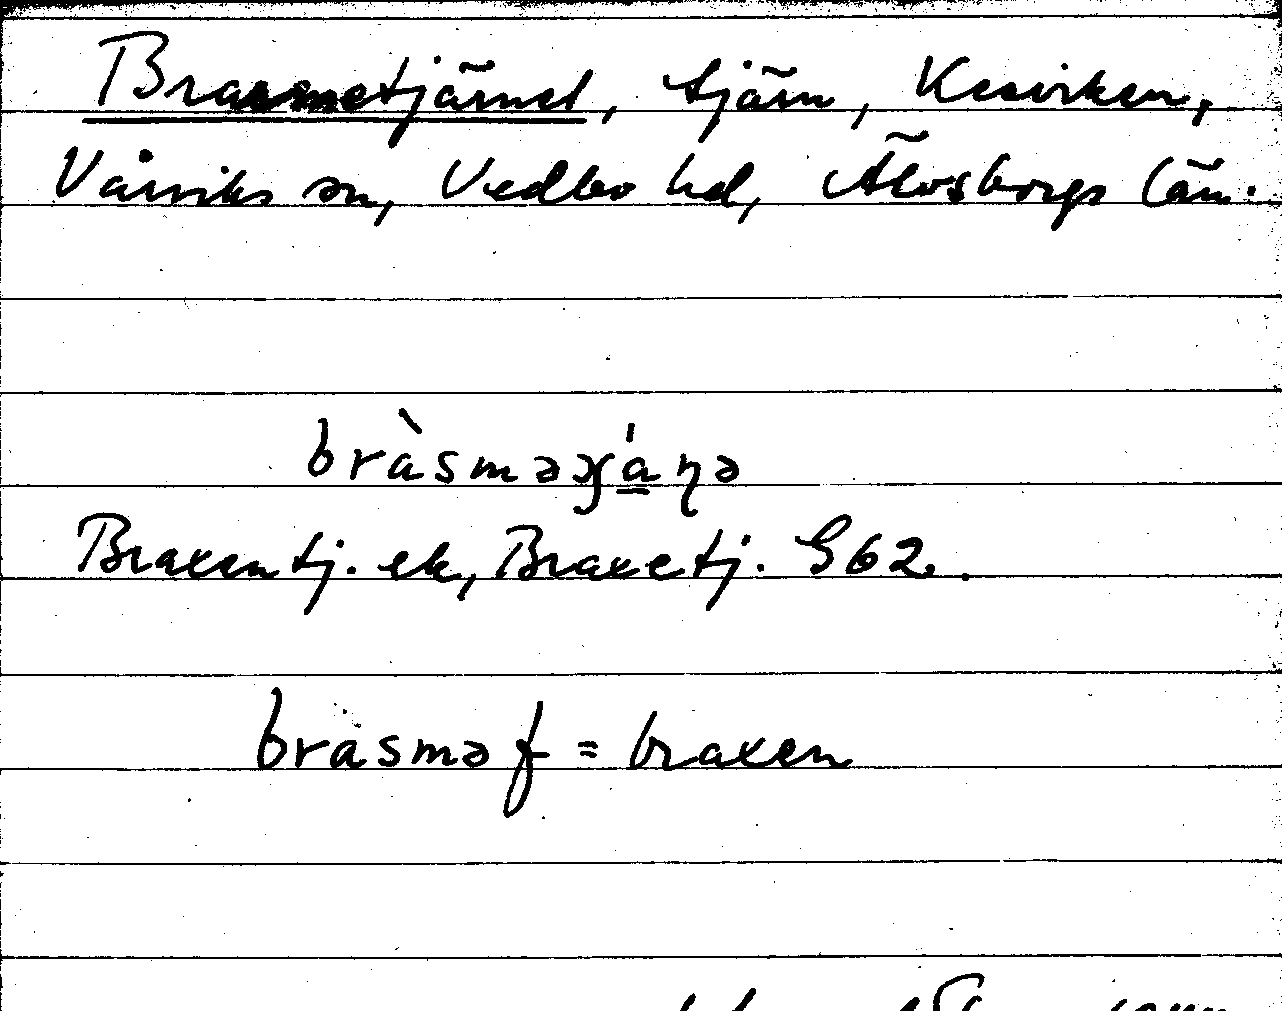 Brasmetjärnet, tjärn, Kesviken,
Vårviks sn, Vedbo hd, Älvsborgs län.
bràsməɟáɳə
Braxentj. ek, Braxetj. G62.
brasmə f = braxen